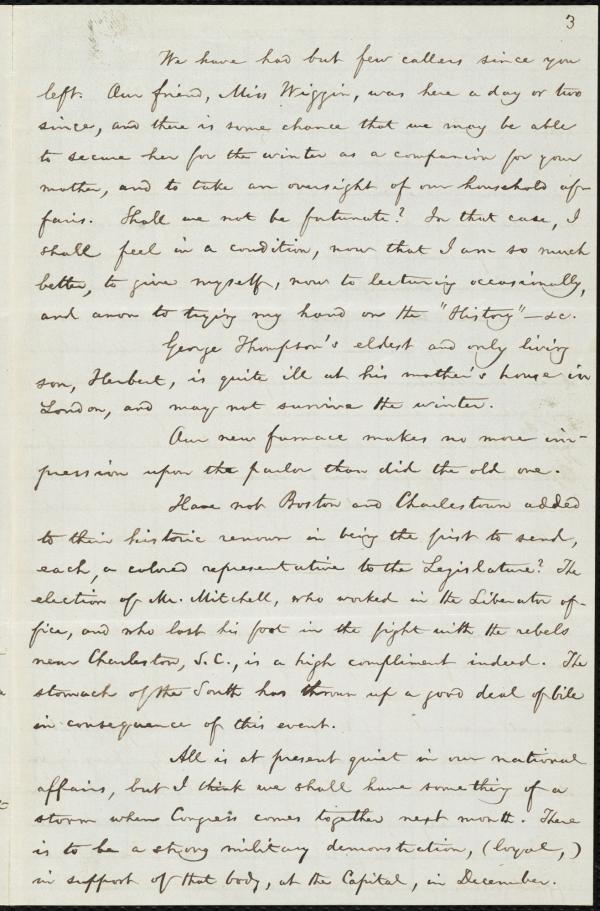 3
We have had but few callers since you
left. Our friend, Miss Wiggin, was here a day or two
since, and there is some chance that we may be able
to secure her for the winter as a companion for your
mother, and to take an oversight of our household af-
fairs. Shall we not be fortunate? In that case, I
shall feel in a condition, now that I am so much
better, to give myself, now to lecturing occasionally,
and anon to trying my hand on the "History"—&c.
George Thompson's eldest and only living
son, Herbert, is quite ill at his mother's house in
London, and may not survive the winter.
Our new furnace makes no more im-
pression upon the parlor than did the old one.
Have not Boston and Charlestown added
to their historic renown in being the first to send,
each, a colored representative to the Legislature? The
election of Mr. Mitchell, who worked in the Liberator of-
fice, and who lost his foot in the fight with the rebels
near Charleston, S.C., is a high compliment indeed. The
stomach of the South has thrown up a good deal of bile
in consequence of this event.
All is at present quiet in our national
affairs, but I think we shall have something of a
storm when Congress comes together next month. There
is to be a strong military demonstration, (loyal,)
in support of that body, at the Capital, in December.